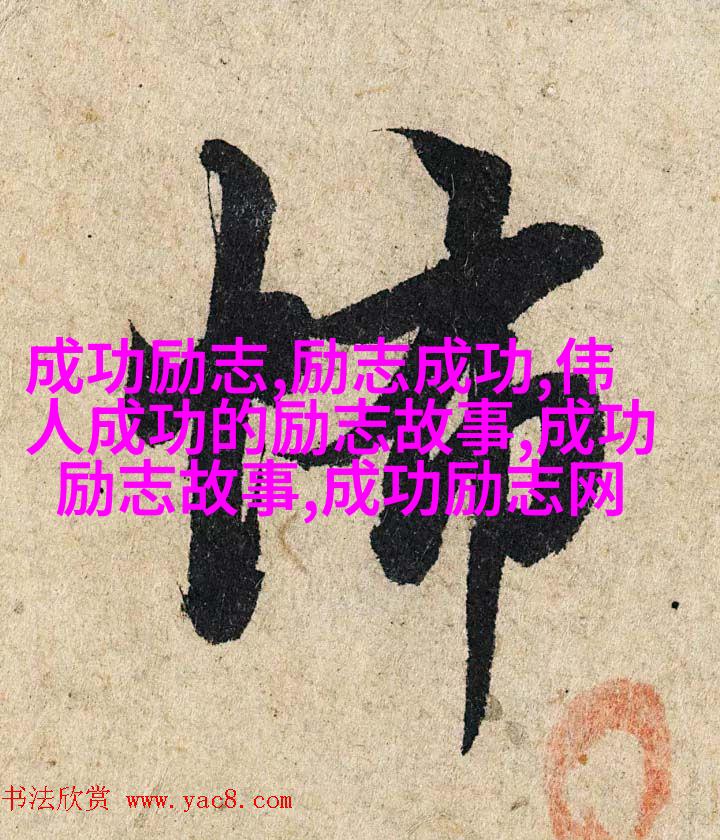 成功励志,励志成功,伟
人成功的励志故事,成功
励志故事,成功励志网
书法欣赏 www.yac8.com